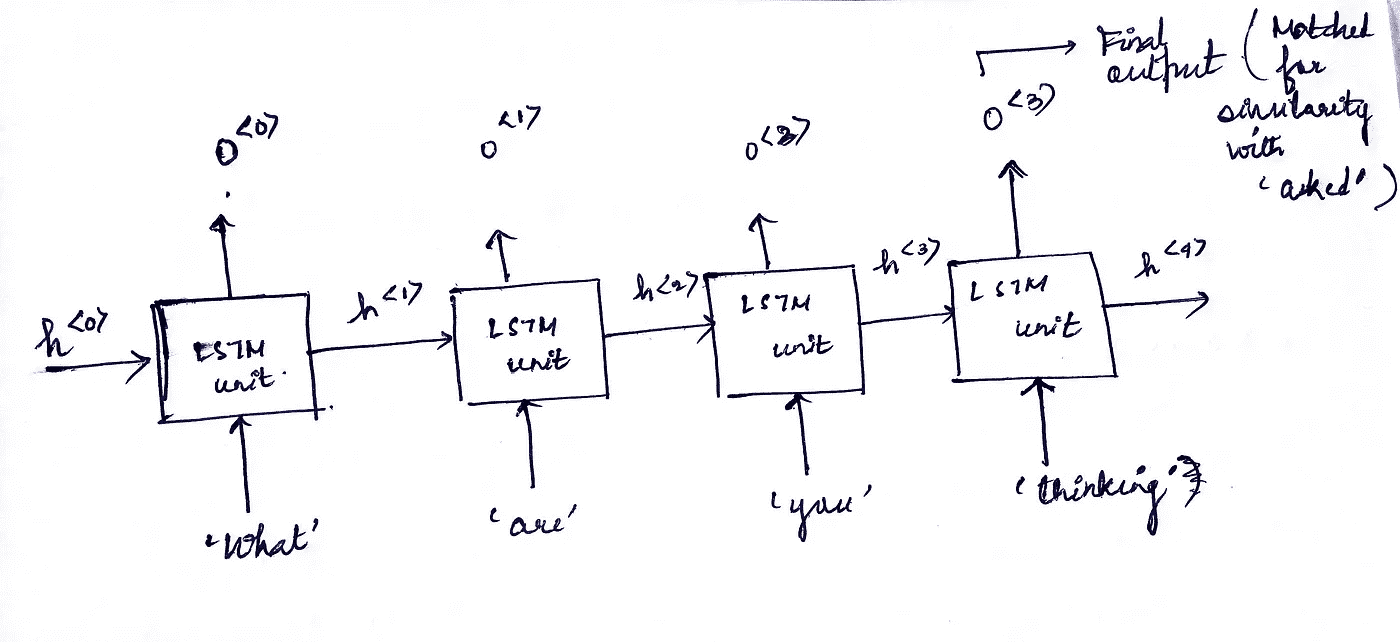 Final output ( Matched
for
similarity
with
'asked' )
o<0>
o<1>
o<2>
o<3>
h<0>
LSTM
unit.
h<1>
LSTM
unit
h<2>
LSTM
unit
h<3>
LSTM
unit
h<4>
'What'
'are'
'you'
'thinking'